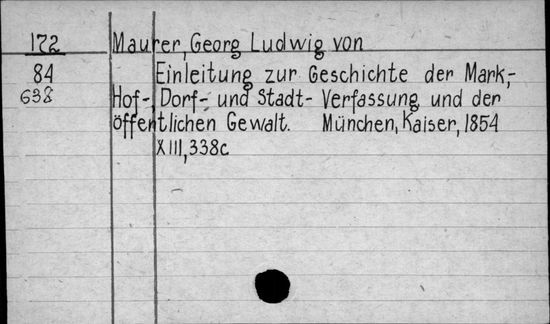 172 Maurer, Georg Ludwig von
84 Einleitung zur Geschichte der Mark-,
638 Hof-, Dorf- und Stadt- Verfassung und der
öffentlichen Gewalt. München, Kaiser, 1854
XIII, 338c